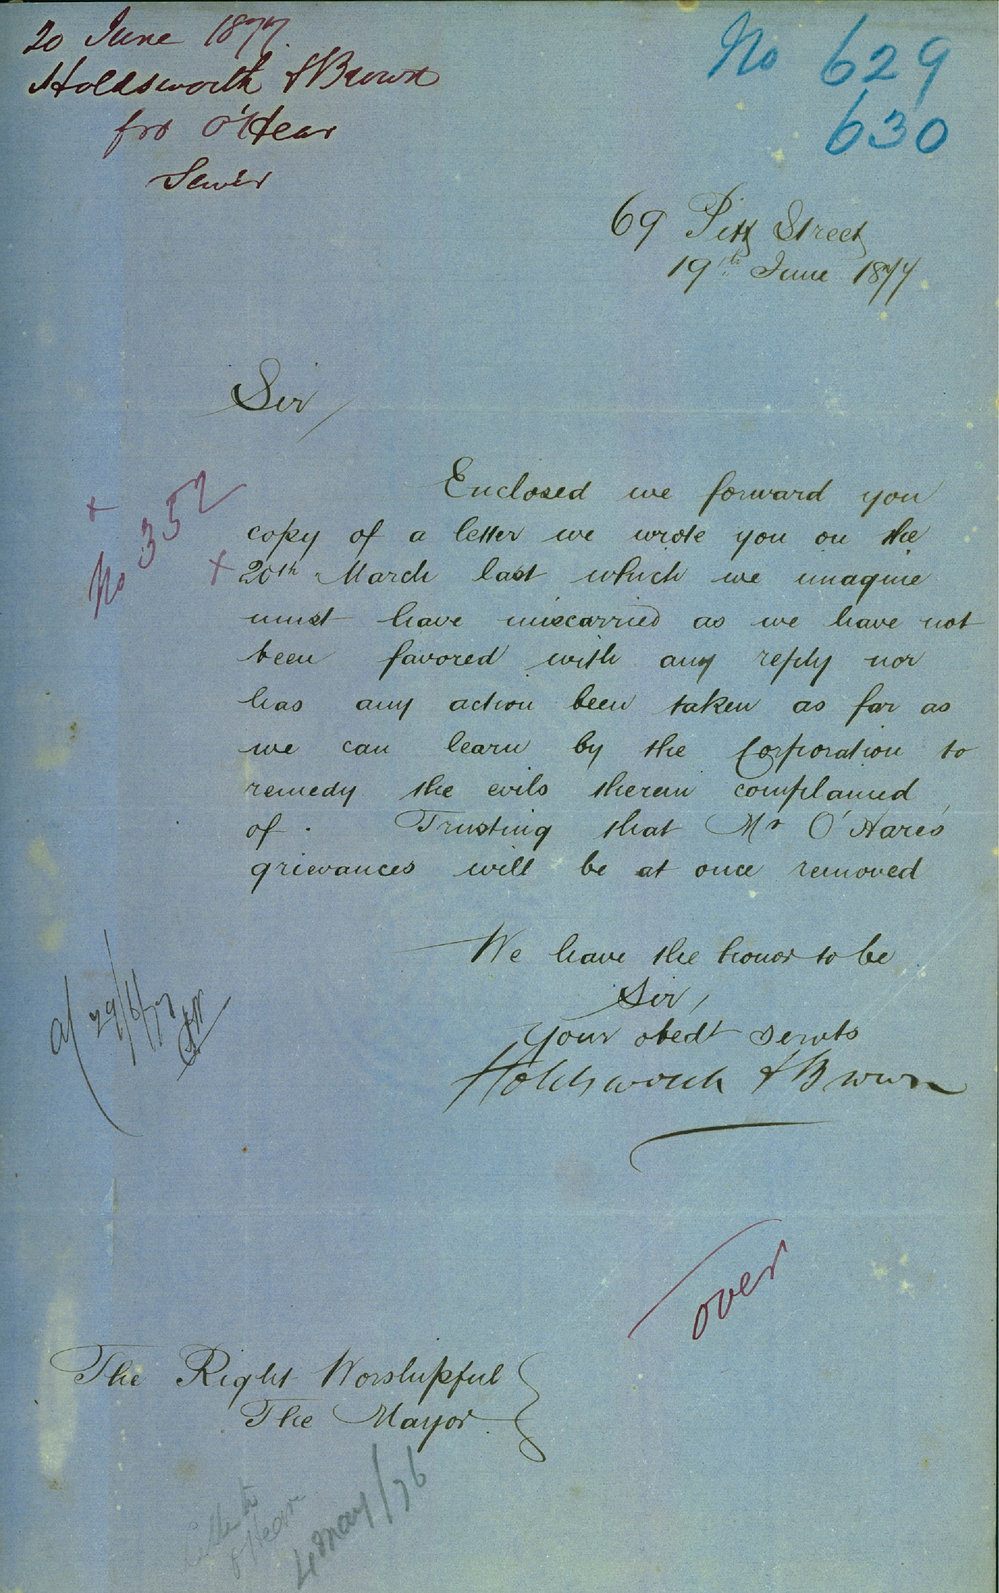 20 June 1877.
Holdsworth & Brown
for O'Hear
Sewer
No 629
630
69 Pitt Street
19th June 1877
Sir
Enclosed we forward you
copy of a letter we wrote you on the
No 352
x
x 20th March last which we imagine
must have miscarried as we have not
been favored with any reply nor
has any action been taken as far as
we can learn by the Corporation to
remedy the evils therein complained
of. Trusting that Mr O'Hare's
grievances will be at once removed
We have the honor to be
Sir,
Your obedt servts
Holdsworth & Brown
29/6/77
over
The Right Worshipful
The Mayor
O'Hear
4 May/76